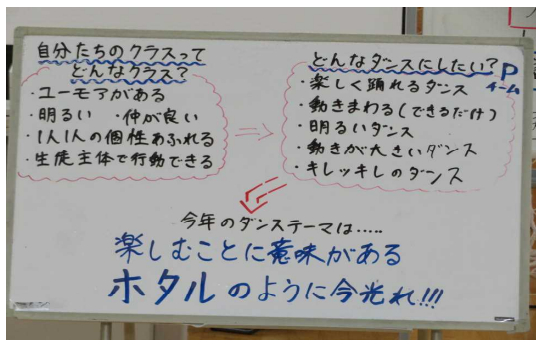 自分たちのクラスって
どんなクラス?
・ユーモアがある
・明るい ・仲が良い
・1人1人の個性あふれる
・生徒主体で行動できる
どんなダンスにしたい?
Pチーム
・楽しく踊れるダンス
・動きまわる(できるだけ)
・明るいダンス
・動きが大きいダンス
・キレッキレのダンス
今年のダンステーマは.....
楽しむことに意味がある
ホタルのように今光れ!!!